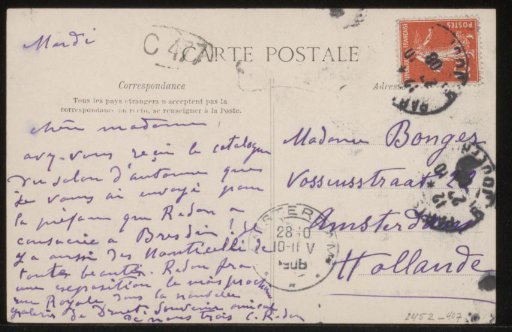 Mardi
C 47
CARTE POSTALE
Correspondance
Adresse
Tous les pays étrangers n'acceptent pas la
correspondance au recto, se renseigner à la Poste.
chère madame,
avez-vous reçu le catalogue
du salon d'automne que
je vous ai envoyé pour
la préface que Redon a
consacrée à Bresdin! il
y a aussi des Monticelli de
toutes beautés. Redon fera
une exposition le mois prochain
rue Royale, dans la nouvelle
galerie de Druet. Souvenir amical
de nous trois C. Redon
Madame Bonger
Vossiusstraat 22
Amsterdam
Hollande
AMSTERDAM
28 10
10-11 V
POSTES
2452-407